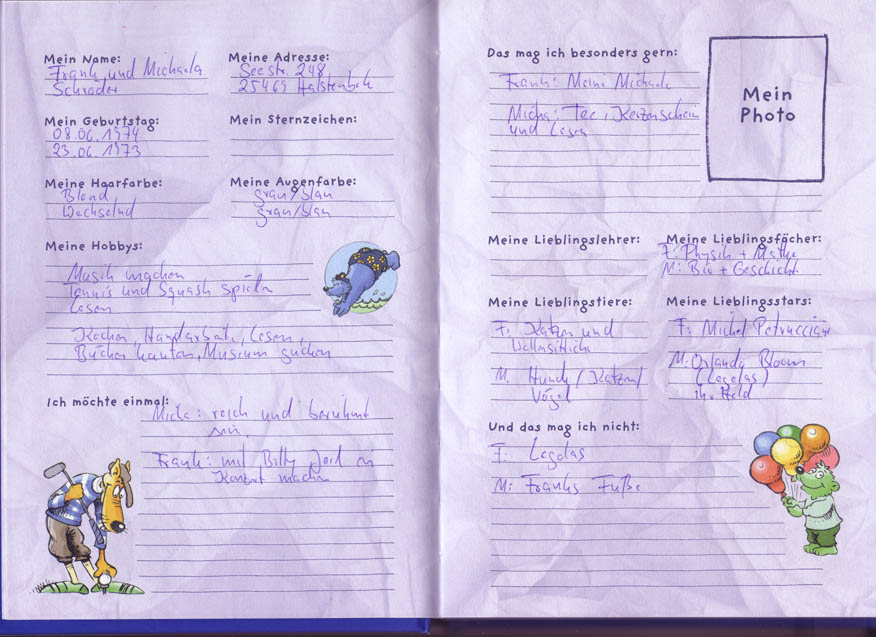 Mein Name:
Frank und Michaela
Schröder
Meine Adresse:
Seestr. 248
25469 Halstenbek
Mein Geburtstag:
08.06.1974
23.06.1973
Mein Sternzeichen:
Meine Haarfarbe:
Blond
Wechselnd
Meine Augenfarbe:
grau/blau
grau/blau
Meine Hobbys:
Musik machen
Tennis und Squash spielen
Lesen
Kochen, Handarbeiten, Lesen,
Bücher kaufen, Museum
Ich möchte einmal:
Micha: reich und berühmt
sein.
Frank: mit Billy Joel ein
Konzert machen
Das mag ich besonders gern:
Frank: Meine Michaela
Micha: Tee, Kerzenschein
und Lesen
Mein
Photo
Meine Lieblingslehrer:
Meine Lieblingsfächer:
F: Physik + Mathe
M: Bio + Geschichte
Meine Lieblingstiere:
F: Katzen und
Wellensittiche
M. Hunde/Katzen/
Vögel
Meine Lieblingsstars:
F: Michel Petrucciani
M: Orlando Bloom
(Legolas)
ihr Held
Und das mag ich nicht:
F: Legolas
M: Franks Füße